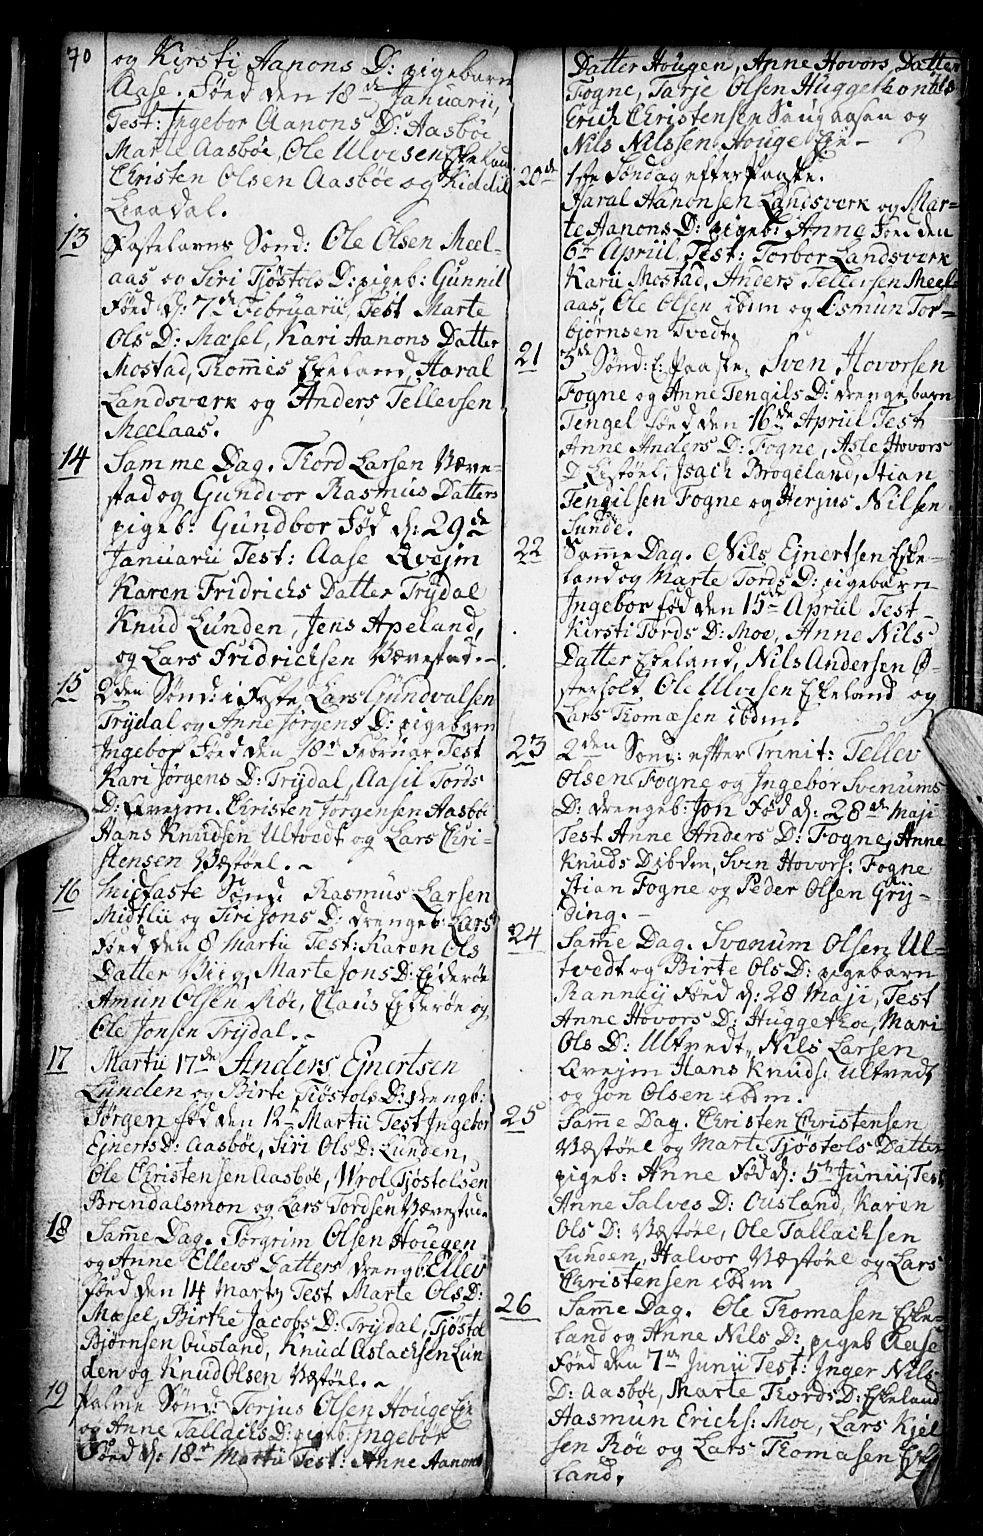 70
og Kirsti Aanons D: pigebarn
Aase. Föed den 18de Januarii,
Test: Ingebor Aanons D: Aasböe
Marte Aasböe, Ole Ulvesen Eskeland
Christen Olsen Aasböe og Kiddil
Liaadal.
13 Fastelavns Sönd: Ole Olsen Meel-
aas og Siri Tjöstols D: pigeb: Gunnil
Föed d: 7de Februarii, Test Marte
Ols D: Mæsel, Kari Aanons Datter
Mostad, Tommes Eskeland, Haral
Landsverk og Anders Tellevsen
Meelaas.
14 Samme Dag. Tord Larsen Væve-
stad og Gundvor Rasmus Datters
pigeb: Gundbor Föd d: 29de
Januarii Test: Aase Qvejm
Karen Fridrichs Datter Trydal
Knud Lunden, Jens Apeland,
og Lars Fridrichsen Vævestad.-
15 2den Sönd: i Faste Lars Gundvalsen
Trydal og Anne Jörgens D: pigebarn
Ingebor Föed den 18de Februar Test
Kari Jörgens D: Trydal, Aasil Tords
D: Qvejm. Christen Jörgensen Aasböe
Hans Knudsen Ultvedt og Lars Chri-
stensen Væstöel.-
16 Midfaste Sönd: Rasmus Larsen
Midtlii og Siri Jons D: drengeb: Lars
Föed den 8 Martii Test: Karen Ols
Datter Viig, Marte Jons D: Ejderöe
Amun Olsen Röe, Claus Ejderöe og
Ole Jonsen Trydal.-
17 Martii 17de Anders Ejnertsen
Lunden og Birte Tjöstols D: drengb:
Jörgen föd den 12te Martii Test Ingebor
Ejnerts D: Aasböe, Siri Ols D: Lunden,
Ole Christensen Aasböe, Wrol Tjöstelsen
Brendalsmon og Lars Tordsen Vævestad.
18 Samme Dag. Torgrim Olsen Hougen
og Anne Ellevs Datters drengb: Ellev
Föed den 14 Marty Test Marte Ols D:
Mæsel, Birthe Jacobs D: Trydal, Tjöstol
Björnsen Ousland, Knud Aslachsen Lun-
den og Knud Olsen Væstöel.-
19 Palme Sönd: Torjus Olsen Houge Eje
og Anne Tallachs D: pigeb: Ingebor
Föed d: 18de Martii Test: Anne Aanons
Datter Hougen, Anne Hovors Datter
Fogne, Tarje Olsen
Erich Christensen Saugaasen og
Nils Nilssen Houge Eje-
20de 1ste Söndag efter Paaske.
Haral Aanonsen Landsverk og Mar-
te Aanons D: pigeb: Anne Föed den
6te Apriil, Test: Torbor Landsverk
Karii Mostad, Anders Tellevsen Meel-
aas, Ole Olsen ibdm og Osmun Tor-
björnsen Tvedt.
21 3de Sönd: E: Paaske, Sven Hovorsen
Fogne og Anne Tengils D: drengebarn
Tengel föed den 16de Apriil Test
Anne Anders D: Fogne, Asle Hovors
D Lestöel, Isach Brogeland, Stian
Tengilsen Fogne og Herjus Nilsen
Sunde.
22 Samme Dag. Nils Ejnertsen Eske-
land og Marte Tords D: pigebarn
Ingebor föed den 15de Apriil Test-
Kirsti Tords D: Moe, Anne Nils
Datter Eskeland, Nils Andersen Ö-
sterholt, Ole Ulvesen Eskeland og
Lars Thomæsen ibdm.
23 2den Sönd: efter Trinit: Tellev
Olsen Fogne og Ingebor Svenums
D: drengeb: Jon Föed d: 28de Maji
Test Anne Anders D: Fogne, Anne
Knuds D ibdm, Sven Hovors: Fogne
Stian Fogne og Peder Olsen Gry-
ding.-
24 Samme Dag. Svenum Olsen Ul-
tvedt og Birte Ols D: pigebarn
Ranney Föed d: 28 Maji, Test
Anne Hovors D: Huggethoe, Mari
Ols D: Ultvedt, Nils Larsen
Qvejm Hans Knuds: Ultvedt
og Jon Olsen ibdm.
25 Samme Dag. Christen Christensen
Væstöel og Marte Tjöstols Datter
pigeb: Anne Föed d: 5te Junii, Test
Anne Salves D: Ousland, Karen
Ols D: Væstöel, Ole Tallachsen
Lunden, Halvor Væstöel og Lars
Christensen ibdm
26 Samme Dag. Ole Thomasen Eske-
land og Anne Nils D: pigeb Aase
Föed den 7de Junii Test: Inger Nils
D: Aasböe, Marte Thords D: Eskeland
Aasmun Erichs: Moe, Lars Kjel
sen Röe og Lars Thomasen Eske
land,